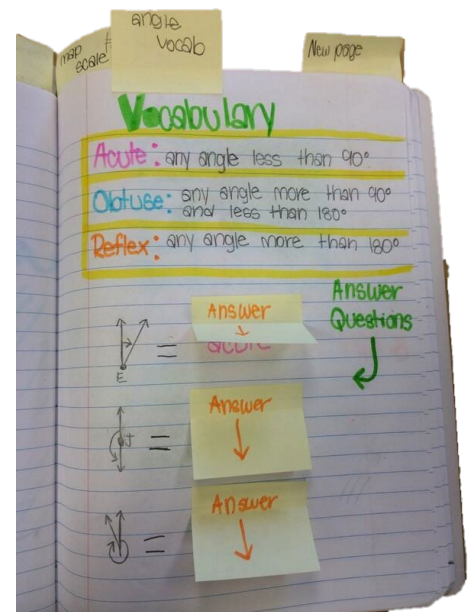 map
scale
angle
vocab
New page
Vocabulary
Acute: any angle less than 90°
Obtuse: any angle more than 90°
and less than 180°
Reflex: any angle more than 180°
Answer
Questions
Answer
acute
E
=
Answer
J
=
Answer
=